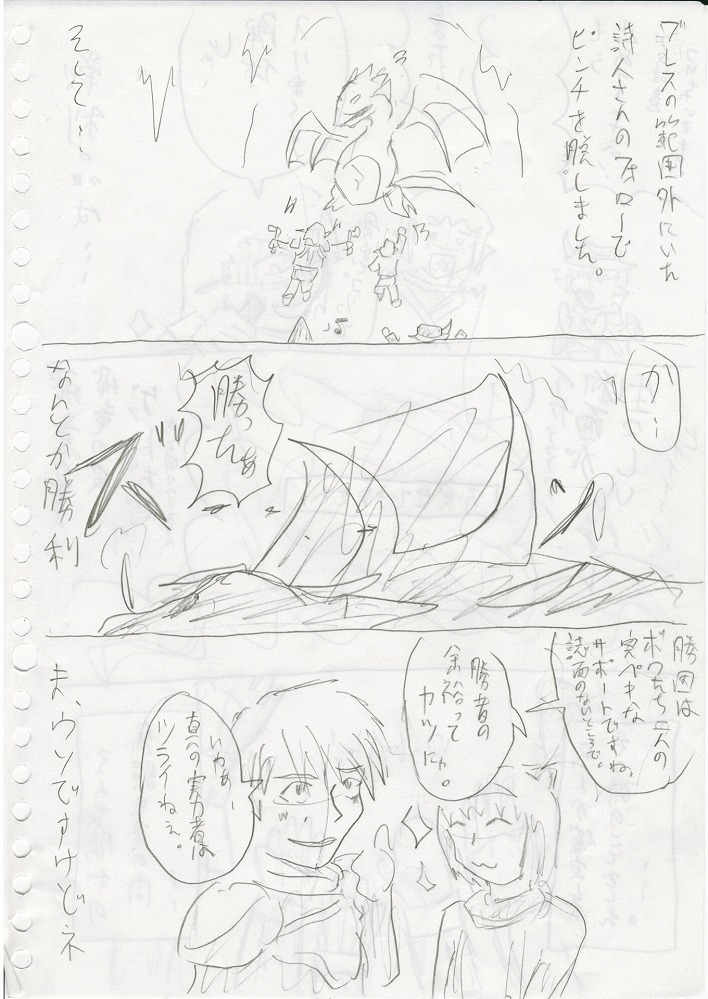 ブレスの範囲外にいた
詩人さんのフォローで
ピンチを脱しました。
そして…
かー
勝っちゃ
ズ
なんとか勝利
勝因は
ボクたち二人の
完ペキな
サポートですね。
誌面のないところで。
勝者の
余裕って
カンジ
いやぁー
真の実力者は
ツライねぇ。
ま、ウソですけどネ